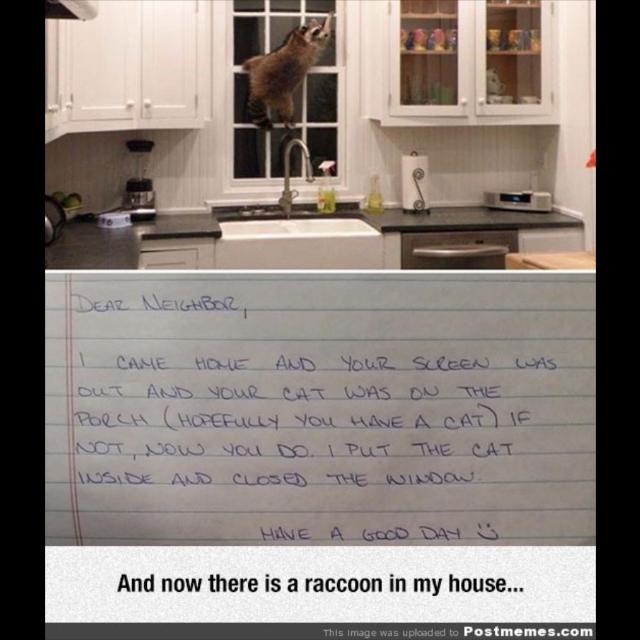 DEAR NEIGHBOR,
I CAME HOME AND YOUR SCREEN WAS
OUT AND YOUR CAT WAS ON THE
PORCH (HOPEFULLY YOU HAVE A CAT) IF
NOT, NOW YOU DO. I PUT THE CAT
INSIDE AND CLOSED THE WINDOW.
HAVE A GOOD DAY
And now there is a raccoon in my house...
This image was uploaded to Postmemes.com